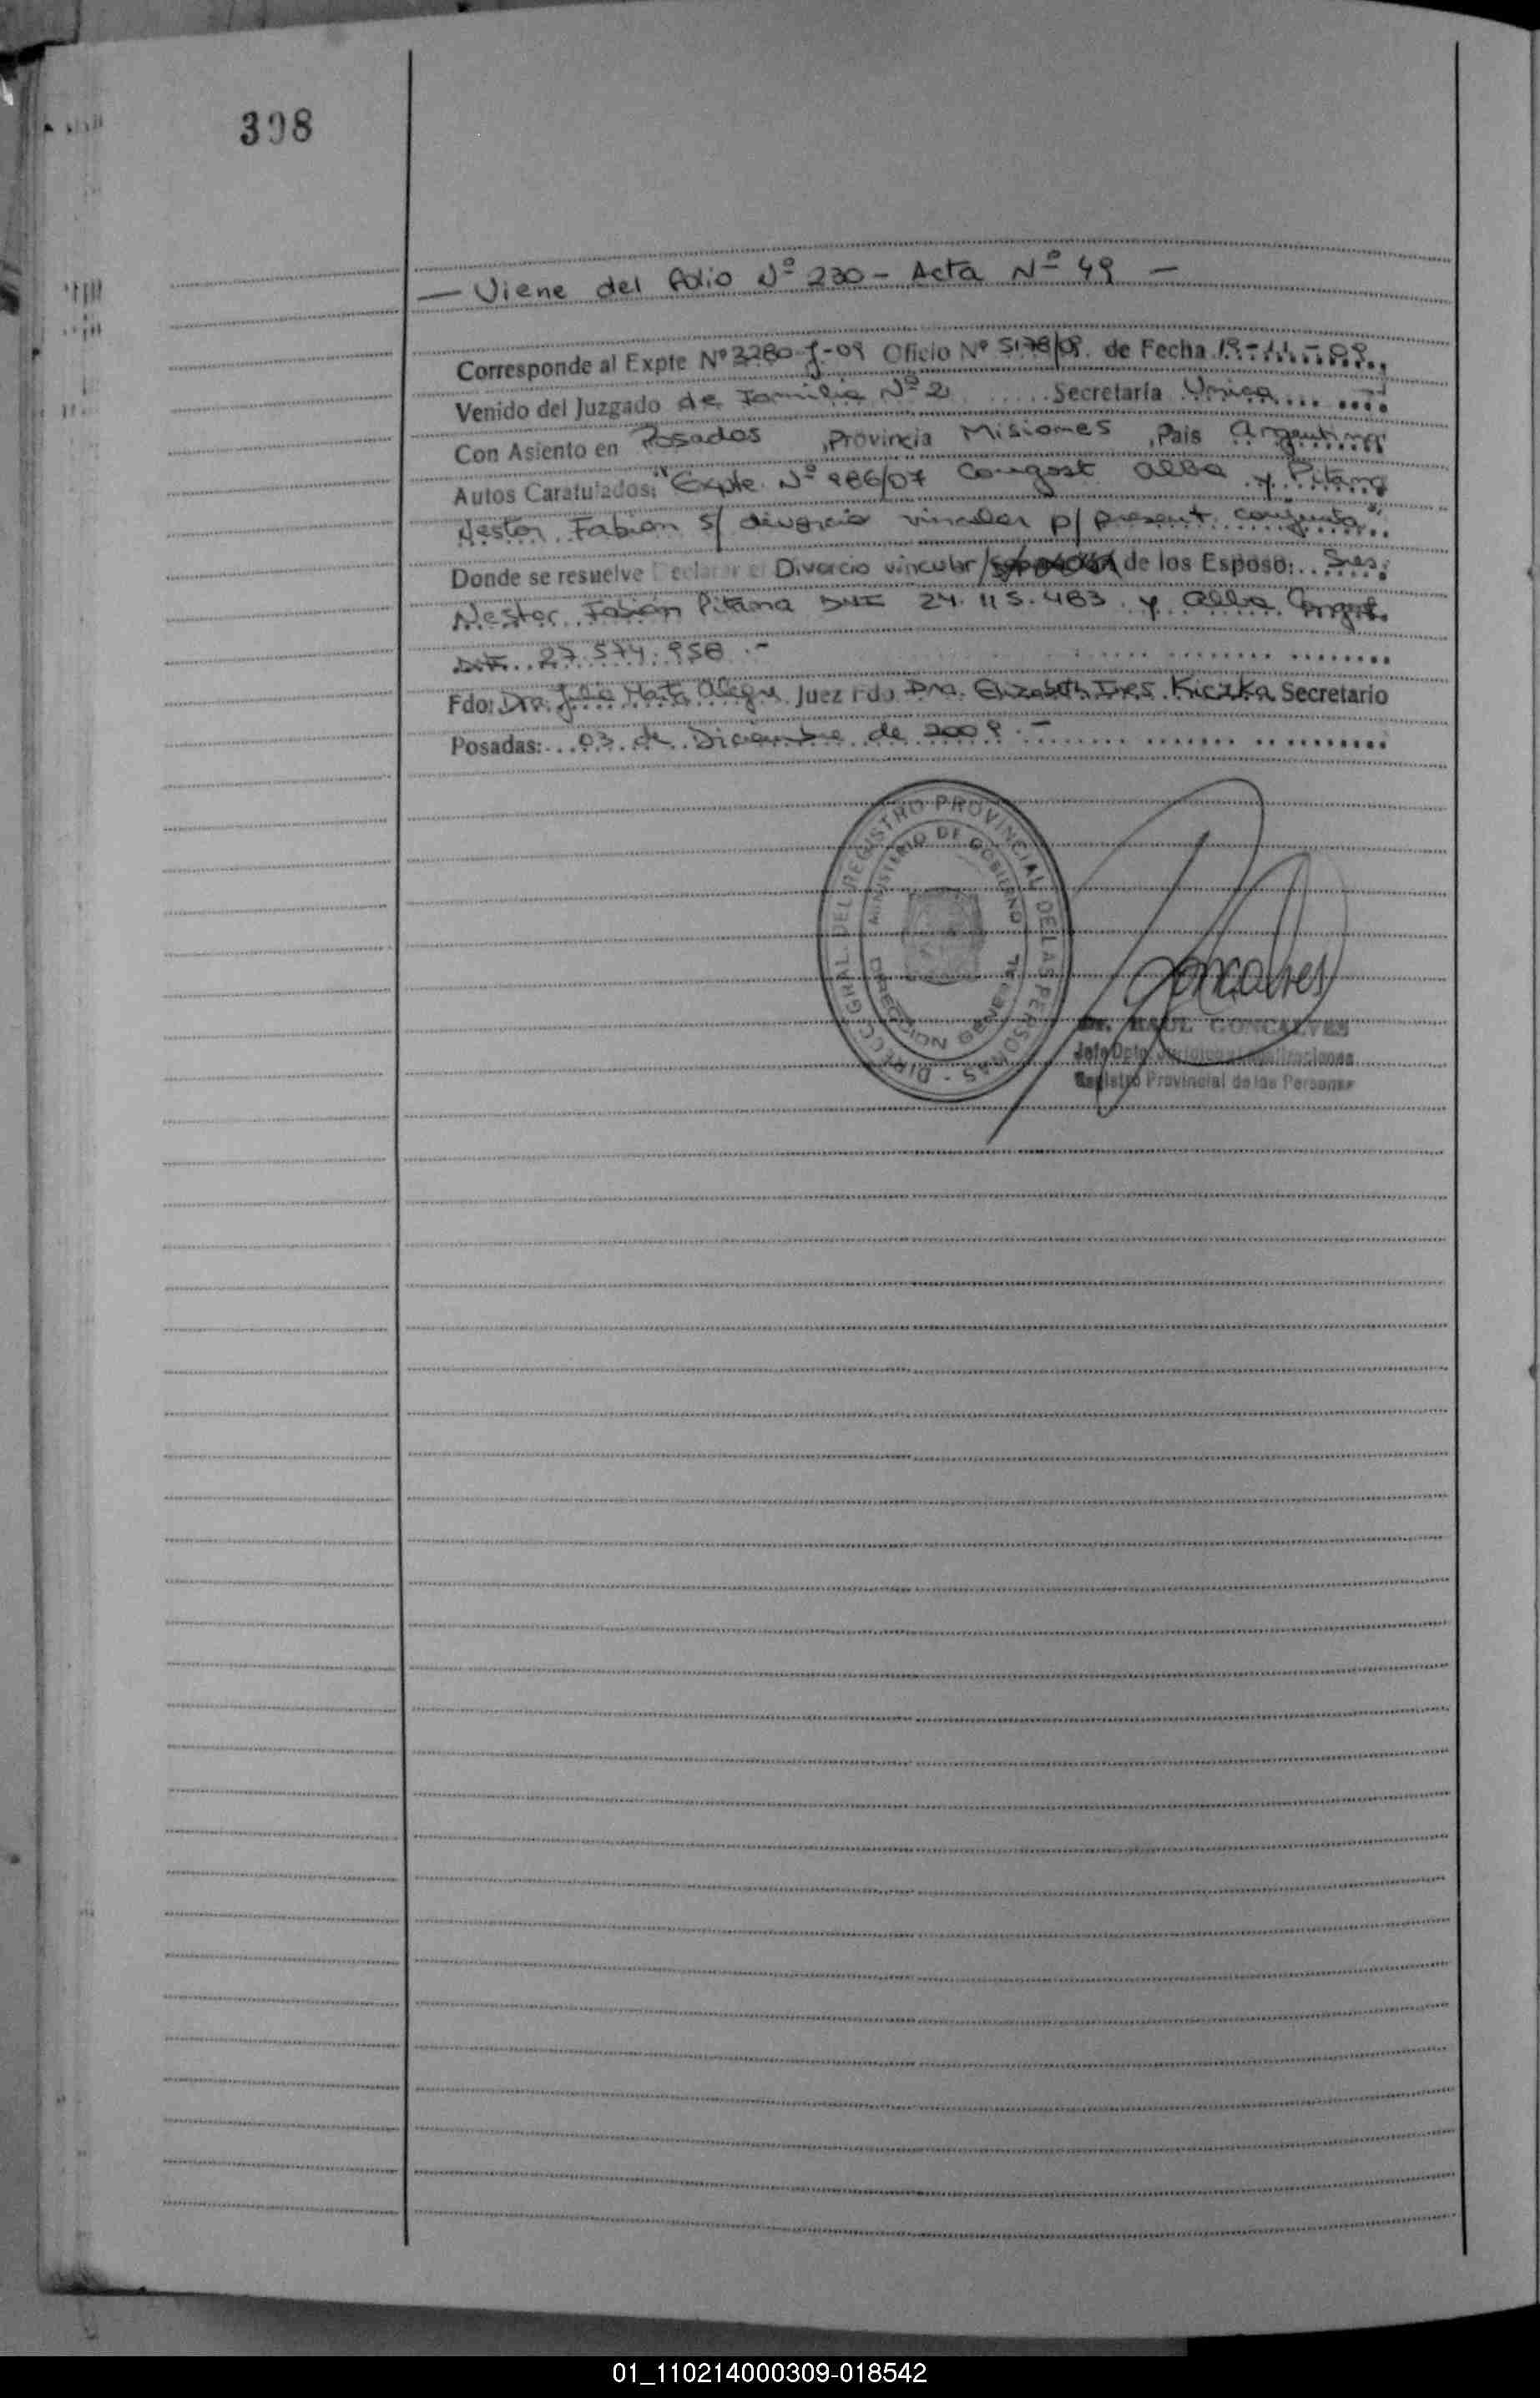 398
— Viene del folio Nº 230 - Acta Nº 49 —
Corresponde al Expte Nº 3280-J-09 Oficio Nº 5178/09. de Fecha 19-11-09.
Venido del Juzgado de Familia Nº 2 ..... Secretaría Unica
Con Asiento en Posadas ,Provincia Misiones ,Pais Argentina
Autos Caratulados: "Expte. Nº 986/07 Congost Alba y Pitana
Nestor Fabian s/ divorcio vincular p/ present. conjunta"
Donde se resuelve Declarar el Divorcio vincular/ de los Esposo: Sres.
Nestor Fabián Pitana DNI 24.115.483 y Alba Congost
DNI. 27.574.958.-
Fdo: Dra. Julia Marta Alegre Juez Fdo Dra. Elizabeth Ines Kiczka Secretario
Posadas: 03 de Diciembre de 2009.-
DIRECC. GRAL. DEL REGISTRO PROVINCIAL DE LAS PERSONAS -
MINISTERIO DE GOBIERNO
DIRECCION
Goncalves
Dr. RAUL GONCALVES
Jefe Dpto.
Registro Provincial de las Personas
01_110214000309-018542